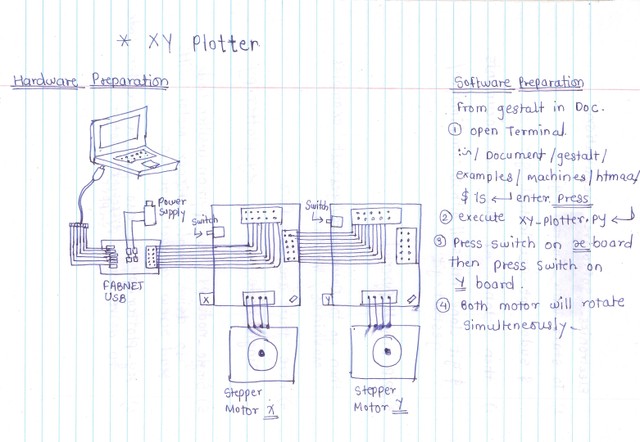 * XY Plotter
Hardware Preparation
Power
Supply
Switch
Switch
FABNET
USB
X
Y
Stepper
Motor X
Stepper
Motor Y
Software Preparation
From gestalt in Doc.
① open Terminal.
:~/ Document/gestalt/
examples/machines/htmaa/
$ ls ↵ enter Press
② execute XY_plotter.py ↵
③ Press switch on x board
then press switch on
Y board.
④ Both motor will rotate
simulteneously.